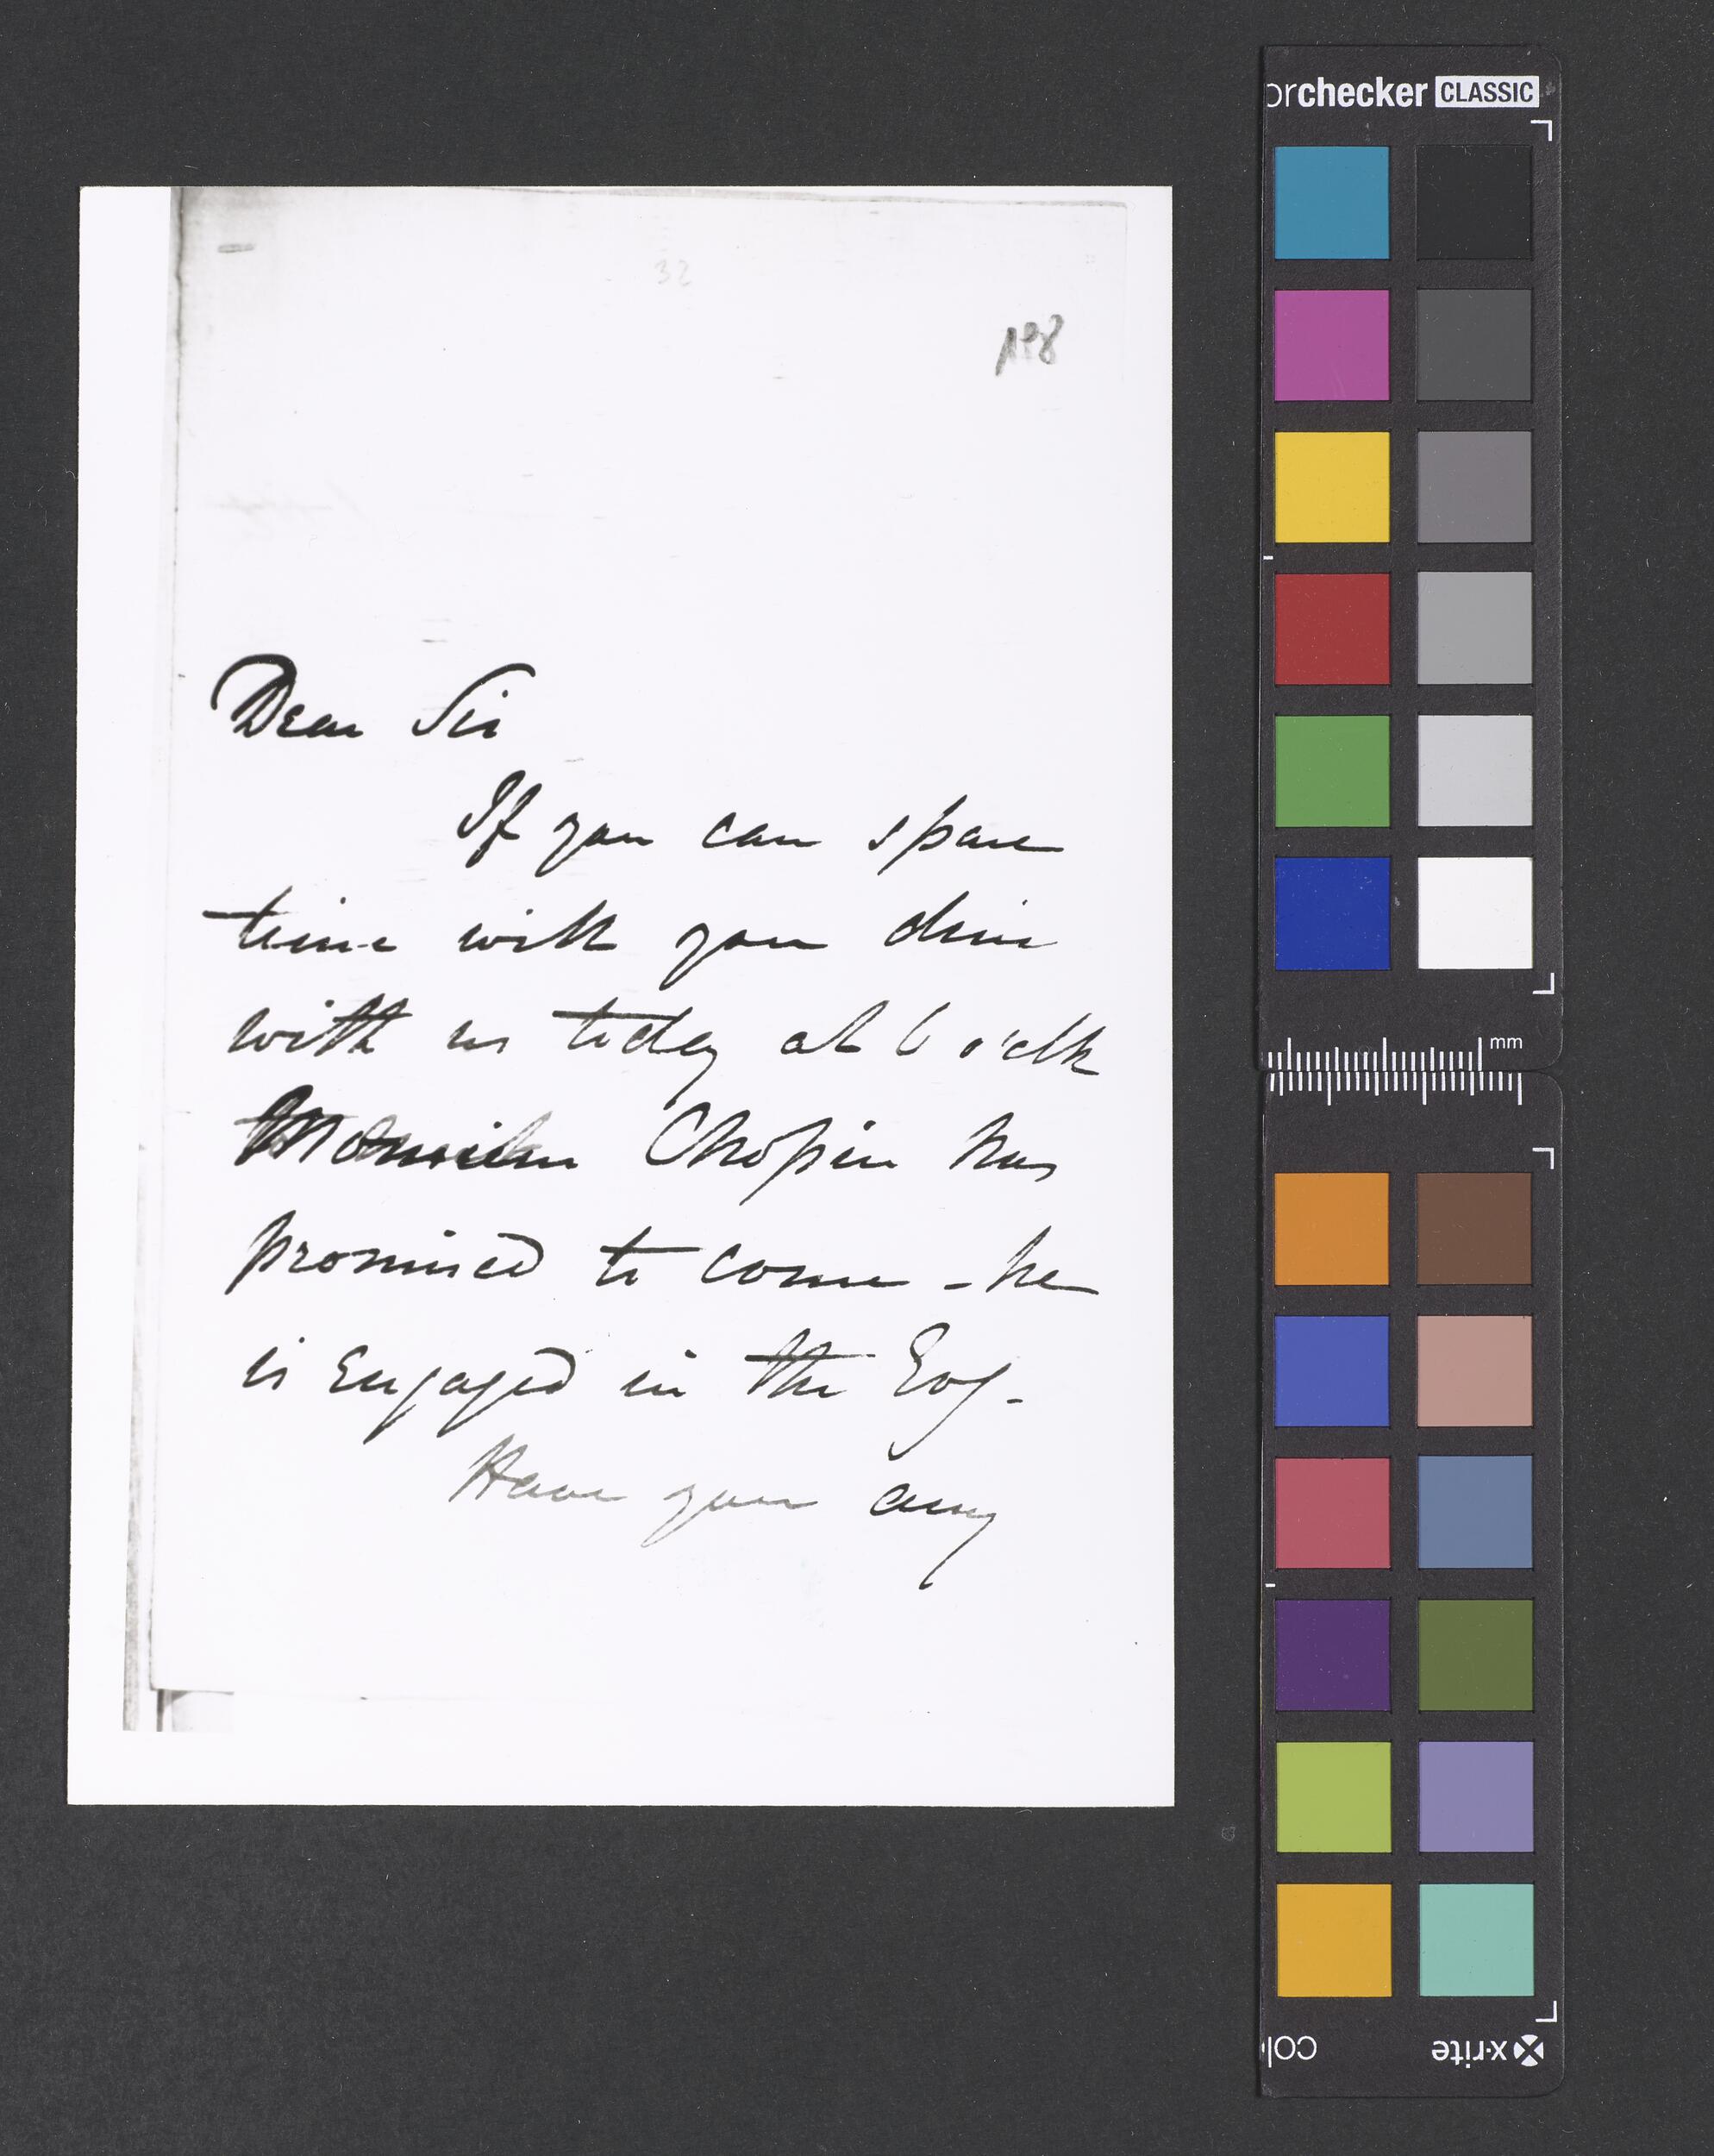 orchecker CLASSIC
32
Nº8
Dear Sir
If you can spare
time will you dine
with us today at 6 o'clk
Monsieur Chopin has
promised to come - he
is engaged in the Evg.
Have you any
mm
x-rite
col